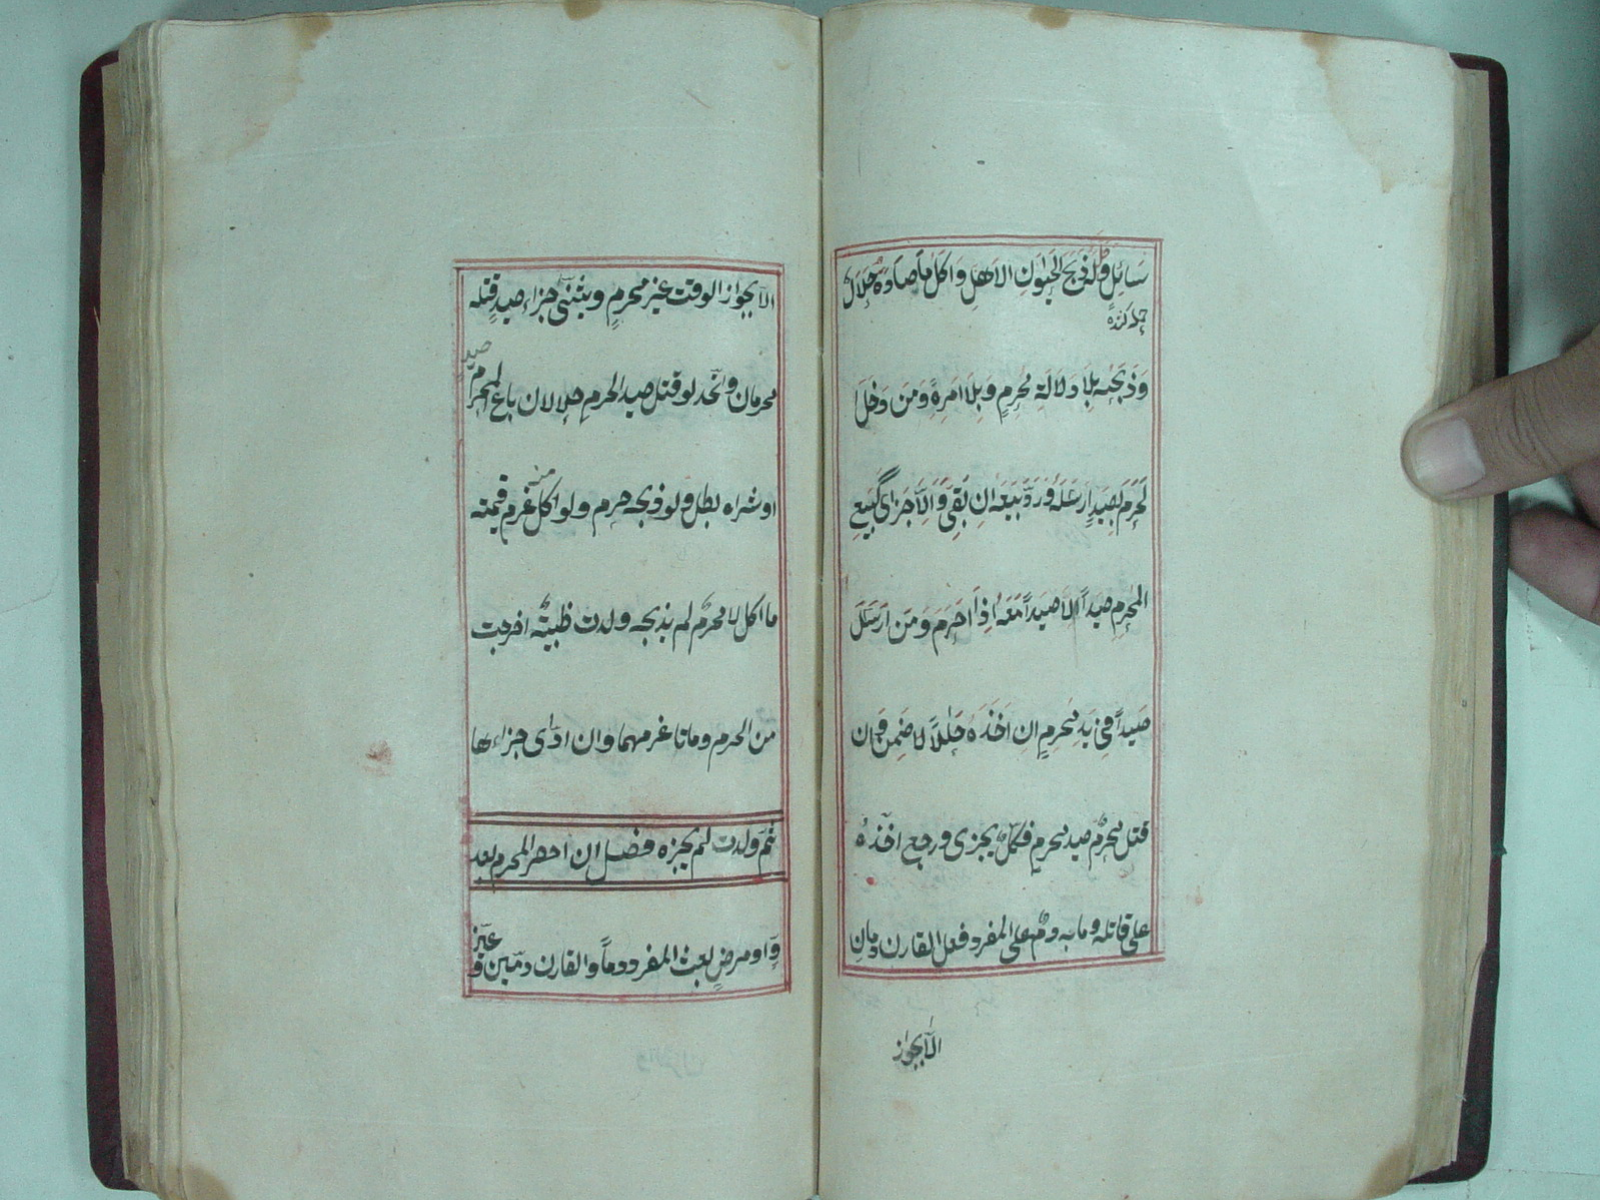 سائل وله ذبح الحيوان الاهل واكل ما صاده حلال
وذبحه بلا دلالة محرم وبلا امره ومن دخل
الحرم بصيد ارسله ورد بيعه ان بقى والا جزى كبيع
المحرم صيدا لا صيدا معه اذا احرم ومن ارسل
صيدا في يد محرم ان اخذه حلالا ضمن والا لا فان
قتل محرم صيد محرم فكل يجزى ورجع اخذه
على قاتله وما به دم على المفرد فعلى القارن دمان
الا بجواز
الا بجواز الوقت غير محرم ويثنى جزاء صيد قتله
محرمان واتحد لو قتل صيد الحرم حلالان باع المحرم
صيد
او شراه بطل ولو ذبحه حرم ولو اكل غرم قيمة
منه
ما اكل لا محرم لم يذبحه ولدت ظبية اخرجت
من الحرم وماتا غرمهما وان ادى جزاءها
ثم ولدت لم يجزه فصل ان احصر المحرم بعد
و او مرض بعث المفرد دما والقارن دمين و